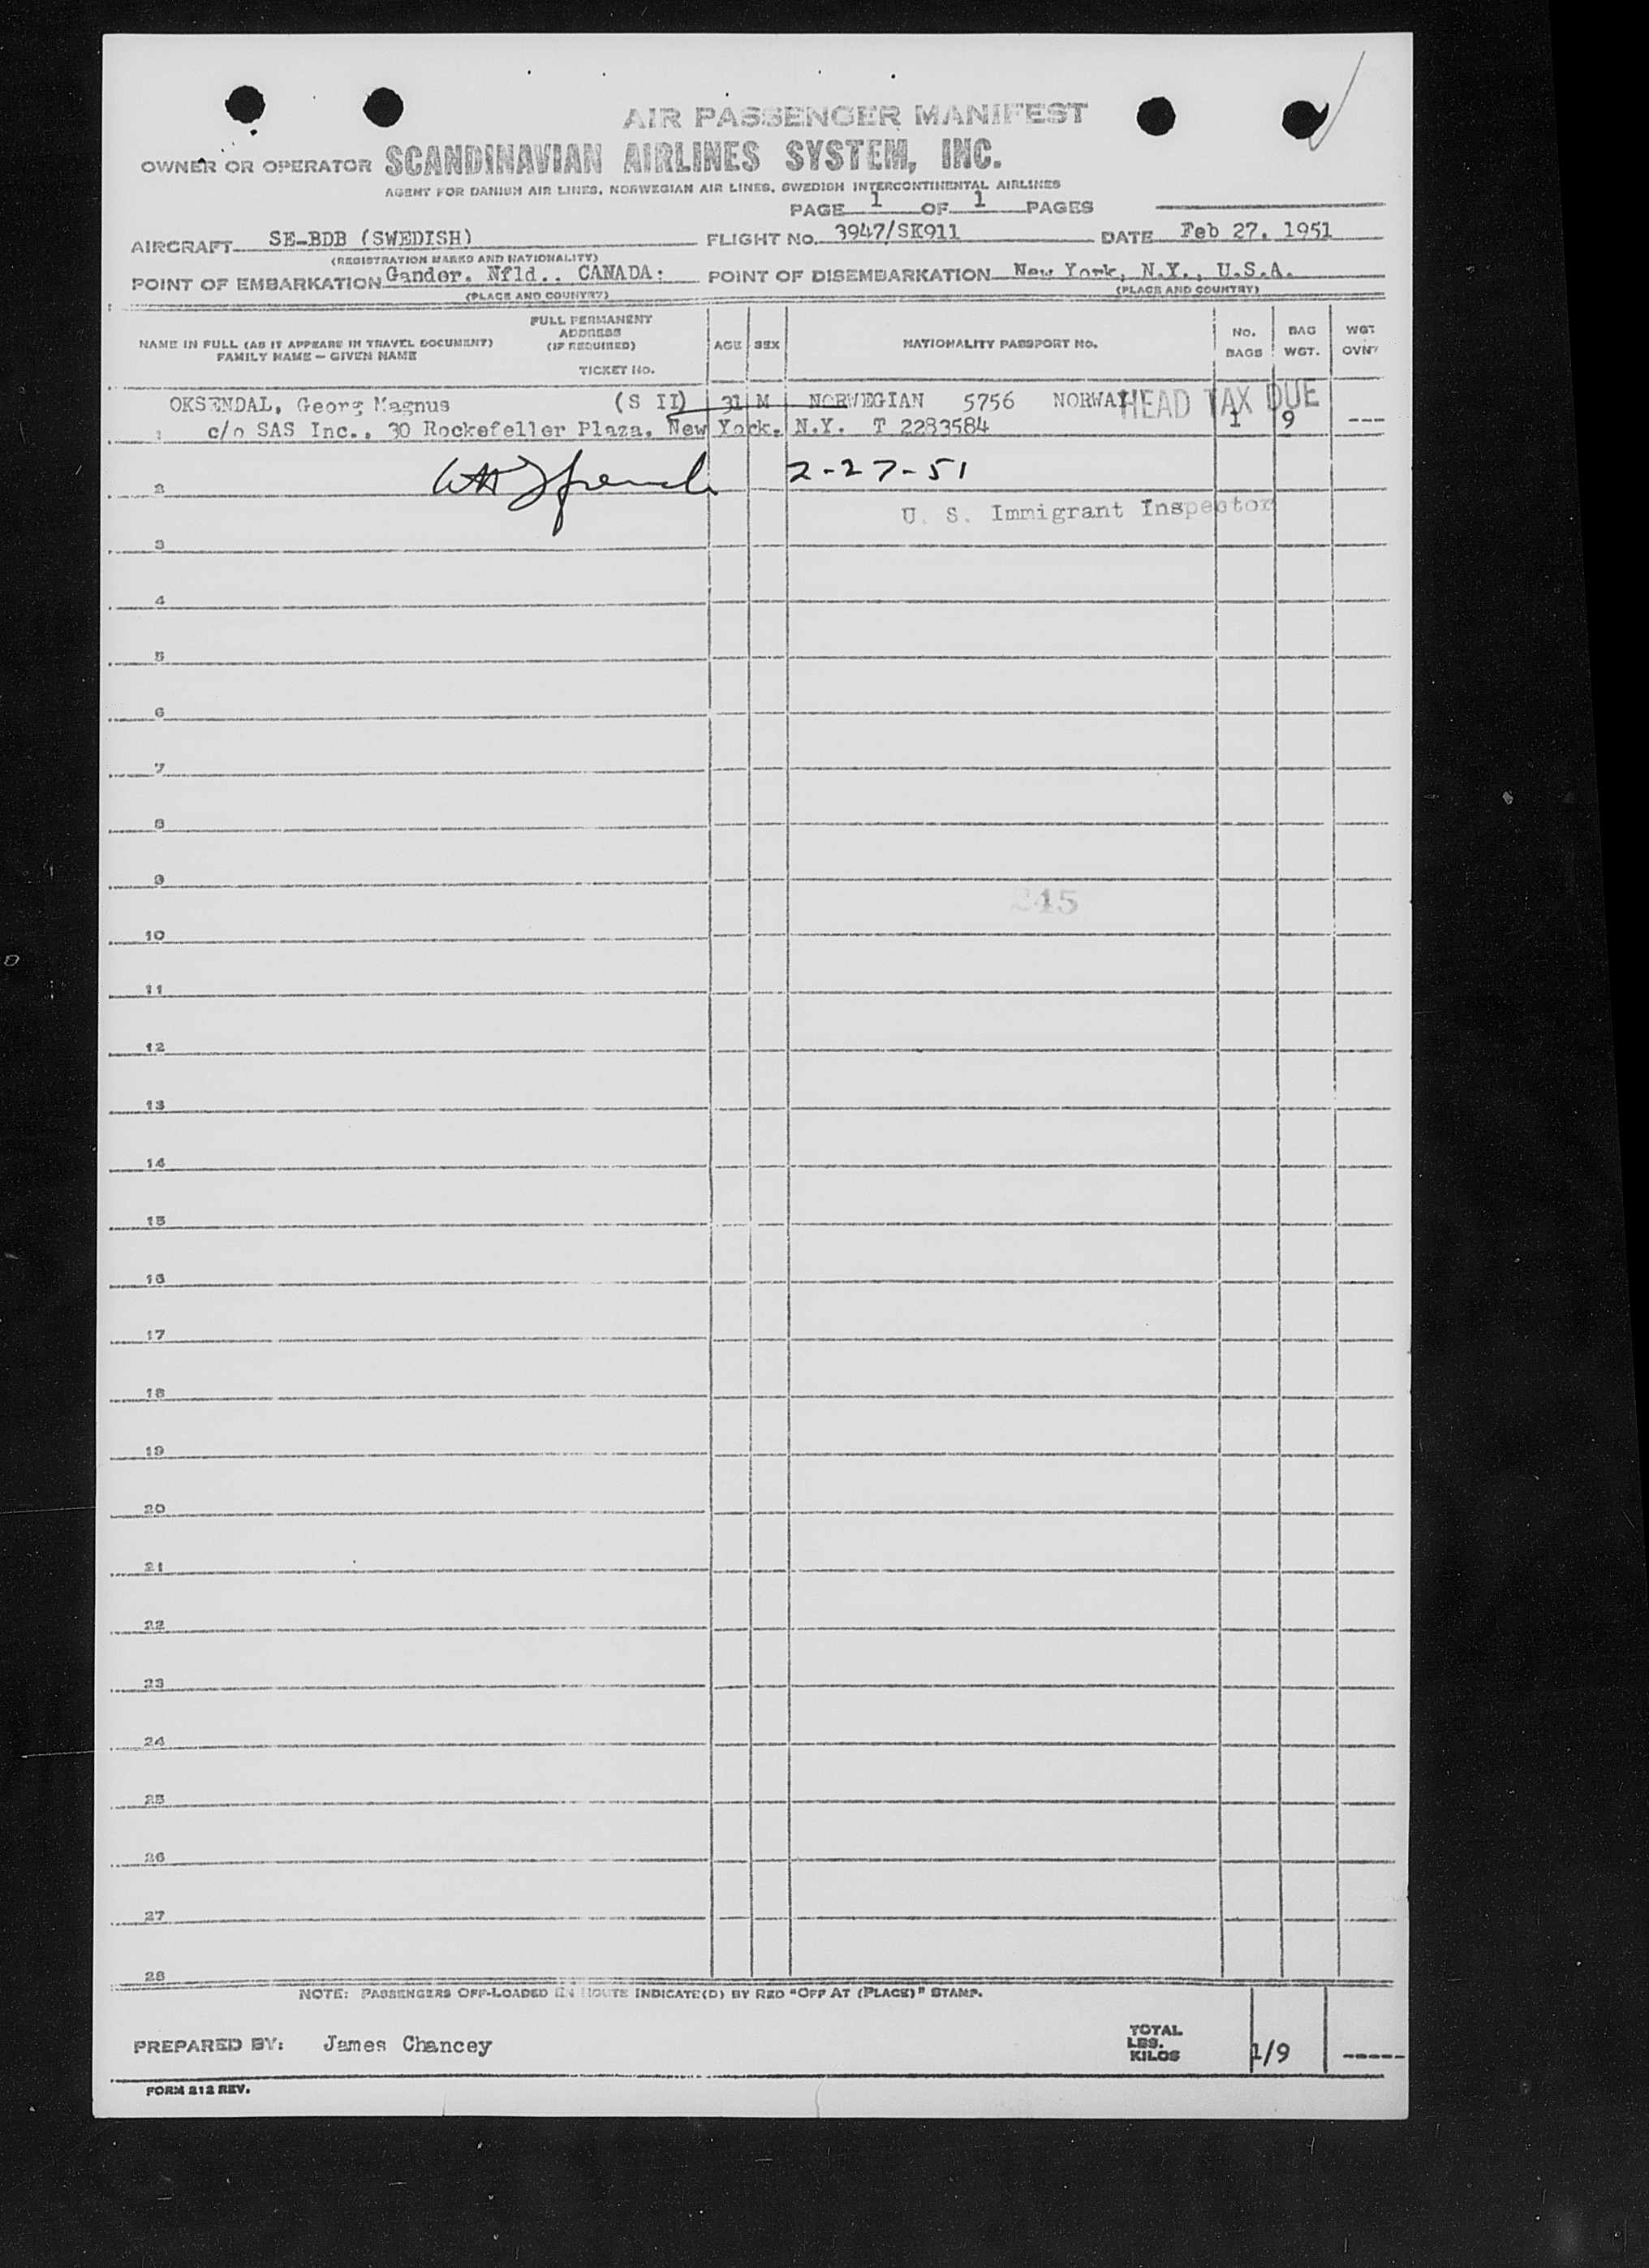 AIR PASSENGER MANIFEST
OWNER OR OPERATOR SCANDINAVIAN AIRLINES SYSTEM, INC.
AGENT FOR DANISH AIR LINES, NORWEGIAN AIR LINES, SWEDISH INTERCONTINENTAL AIRLINES
PAGE 1 OF 1 PAGES
AIRCRAFT SE-BDB (SWEDISH) FLIGHT NO. 3947/SK911 DATE Feb 27, 1951
(REGISTRATION MARKS AND NATIONALITY)
POINT OF EMBARKATION Gander, Nfld., CANADA: POINT OF DISEMBARKATION New York, N.Y., U.S.A.
(PLACE AND COUNTRY) (PLACE AND COUNTRY)
NAME IN FULL (AS IT APPEARS IN TRAVEL DOCUMENT) FAMILY NAME – GIVEN NAME FULL PERMANENT ADDRESS (IF REQUIRED) TICKET No. AGE SEX NATIONALITY PASSPORT NO. No. BAGS BAG WGT. WGT OVN'
OKSENDAL, Georg Magnus (S II) 31 M NORWEGIAN 5756 NORWAY HEAD TAX DUE
1 c/o SAS Inc., 30 Rockefeller Plaza, New York, N.Y. T 2283584 1 9 ---
2 2-27-51
U. S. Immigrant Inspector
3
4
5
6
7
8
9
245
10
11
12
13
14
15
16
17
18
19
20
21
22
23
24
25
26
27
28
NOTE: PASSENGERS OFF-LOADED EN ROUTE INDICATE(D) BY RED "OFF AT (PLACE)" STAMP.
PREPARED BY: James Chancey TOTAL LBS. KILOS 1/9 -----
FORM 212 REV.